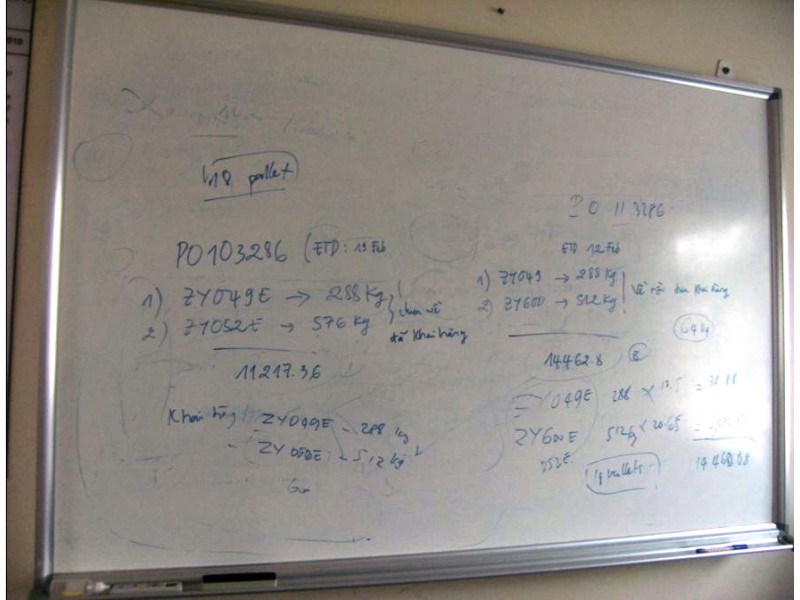 18 pallet
PO103286 (ETD: 19 Feb
1) ZY049E → 288 Kg
2) ZY052E → 576 Kg
chưa về
đã khai hàng
11217.36
Khai hàng ZY049E - 288 kg
- 512 kg
PO 113286
ETD 12 Feb
1) ZY049 → 288 Kg
2) ZY600 → 512 Kg
Về rồi chưa khai hàng
64 kg
14462.8
ZY049E 288 × 13.5 =
ZY600E 512 kg × 20.65 =
052E.
pallets